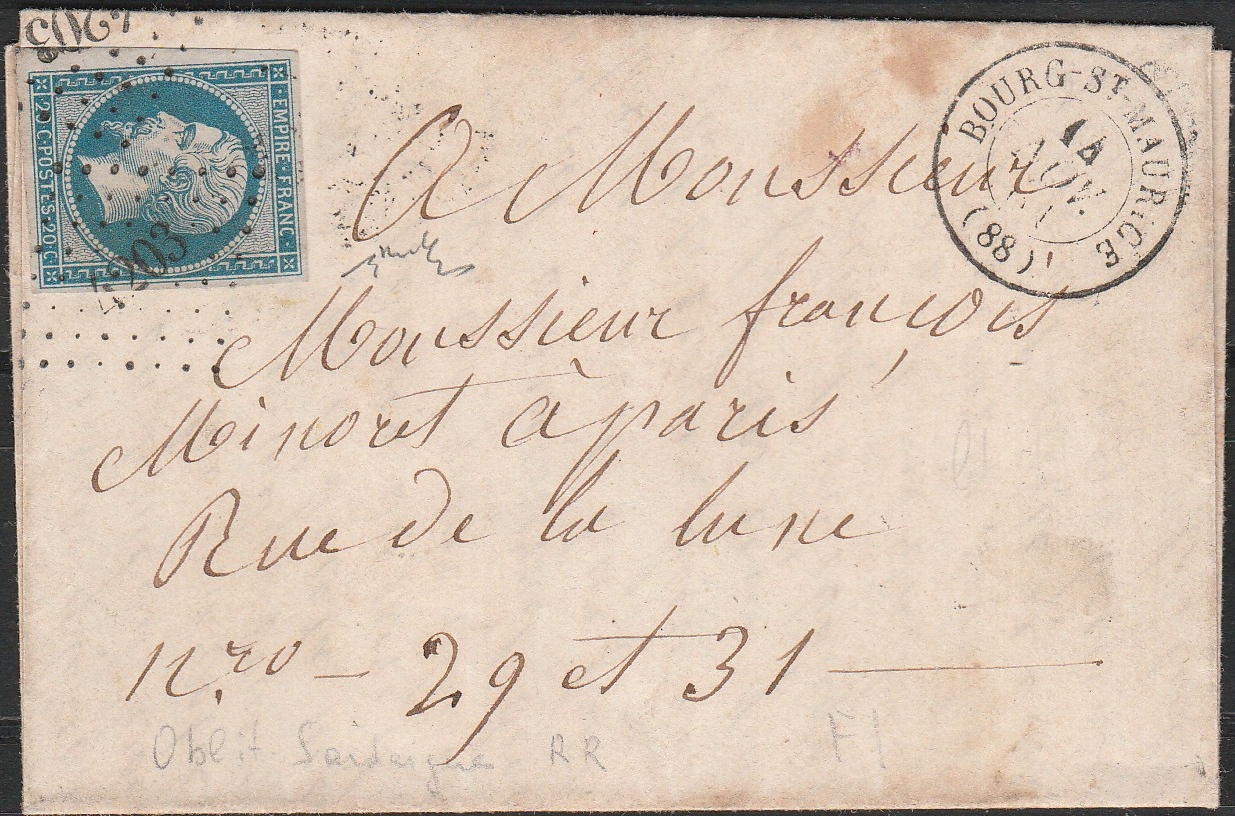 4203
EMPIRE·FRANC·
20·C·POSTES·20·C·
4203
BOURG-ST-MAURICE
14
(88)
A Monssieur
Monssieur françois
Minoret à paris
Rue de la lune
nro – 29 et 31 —
Oblit. Sardaigne RR